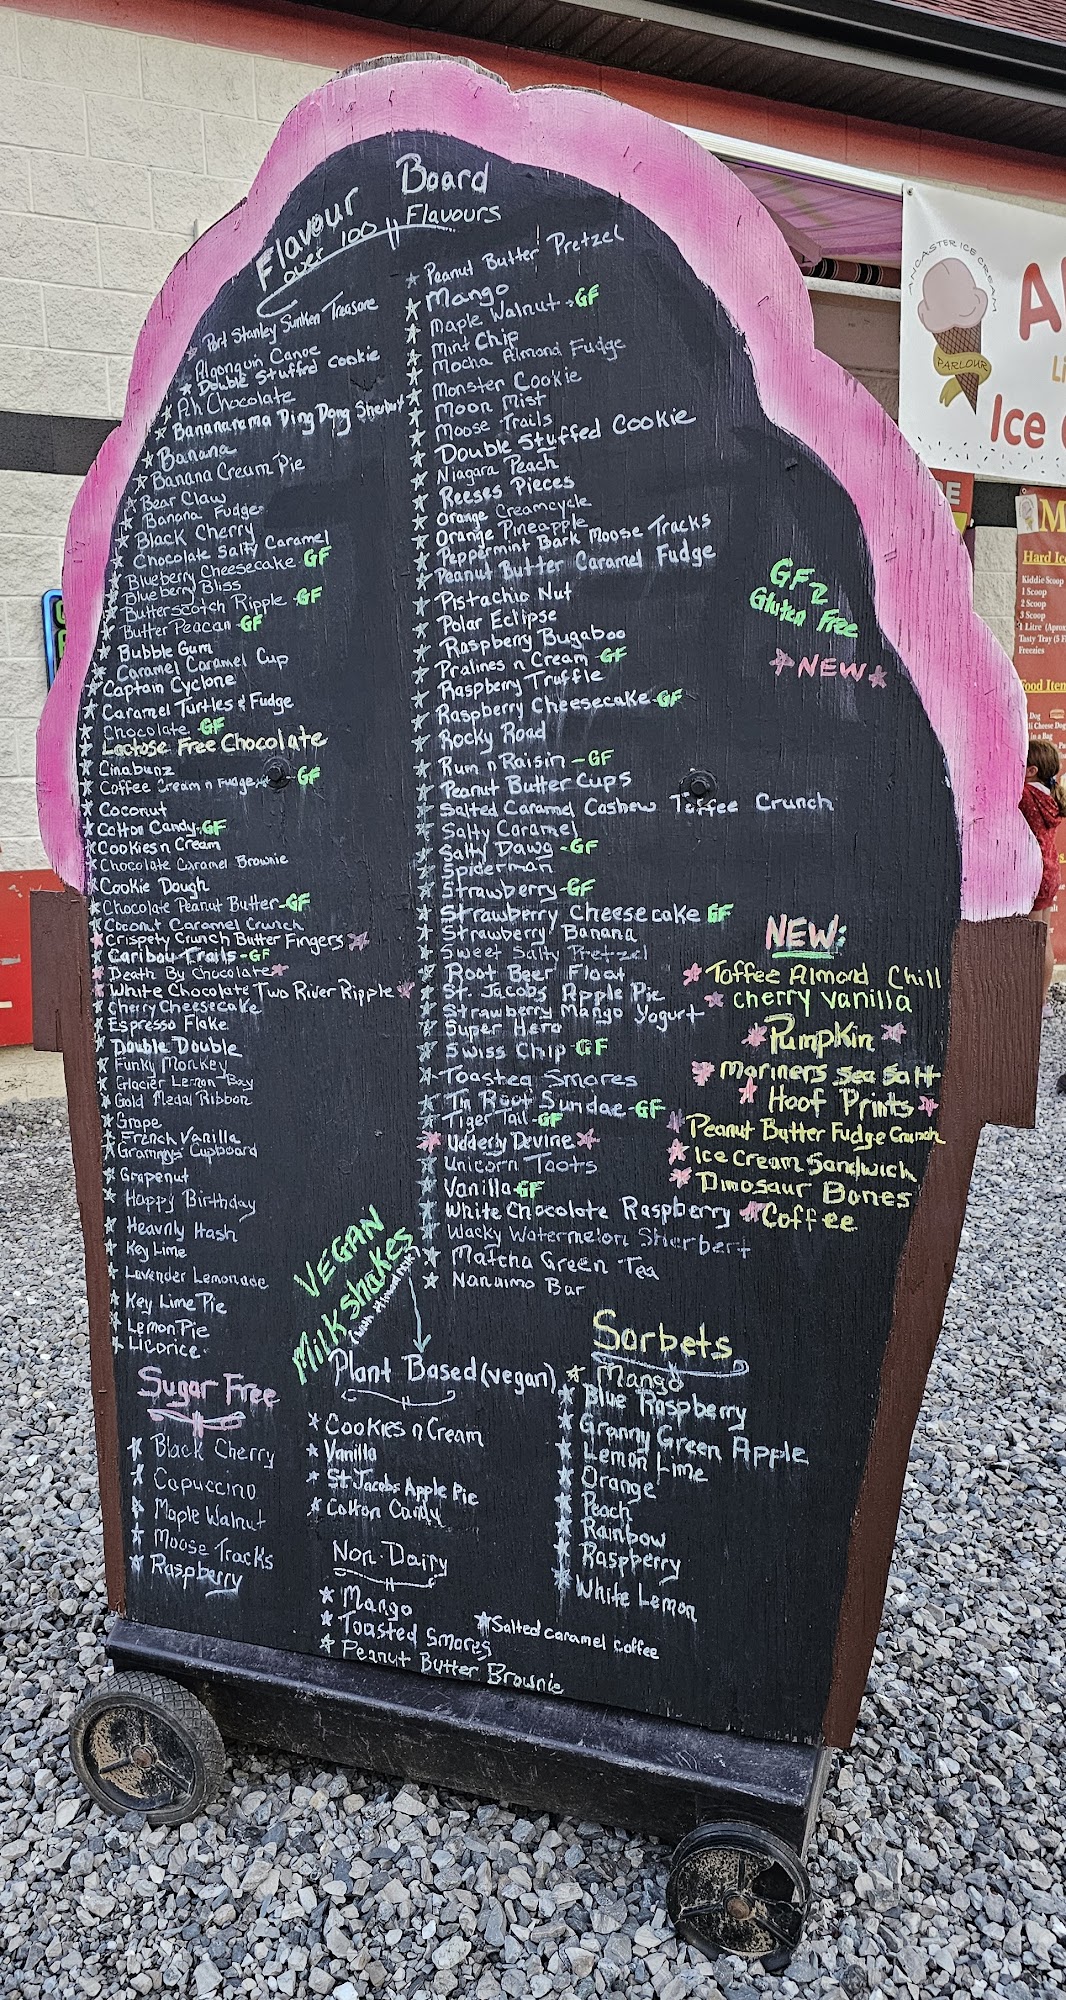 Flavour Board
over 100 Flavours
Port Stanley Sunken Treasure
Algonquin Canoe
Double Stuffed Cookie
Ah Chocolate
Bananarama Ding Dong Sherbert
Banana
Banana Cream Pie
Bear Claw
Banana Fudge
Black Cherry
Chocolate Salty Caramel
Blueberry Cheesecake GF
Blueberry Bliss
Butterscotch Ripple -GF
Butter Peacan -GF
Bubble Gum
Caramel Caramel Cup
Captain Cyclone
Caramel Turtles & Fudge
Chocolate -GF
Lactose Free Chocolate
Cinabunz
Coffee Cream n Fudge GF
Coconut
Cotton Candy-GF
Cookies n Cream
Chocolate Caramel Brownie
Cookie Dough
Chocolate Peanut Butter-GF
Coconut Caramel Crunch
Crispety Crunch Butter Fingers
Caribou Trails -GF
Death By Chocolate
White Chocolate Two River Ripple
Cherry Cheesecake
Espresso Flake
Double Double
Funky Monkey
Glacier Lemon Bay
Gold Medal Ribbon
Grape
French Vanilla
Grammys Cupboard
Grapenut
Happy Birthday
Heavnly Hash
Key Lime
Lavender Lemonade
Key Lime Pie
Lemon Pie
Licorice
Peanut Butter Pretzel
Mango
Maple Walnut -GF
Mint Chip
Mocha Almond Fudge
Monster Cookie
Moon Mist
Moose Trails
Double Stuffed Cookie
Niagara Peach
Reeses Pieces
Orange Creamcycle
Orange Pineapple
Peppermint Bark Moose Tracks
Peanut Butter Caramel Fudge
Pistachio Nut
Polar Eclipse
Raspberry Bugaboo
Pralines n Cream -GF
Raspberry Truffle
Raspberry Cheesecake -GF
Rocky Road
Rum n Raisin -GF
Peanut Butter Cups
Salted Caramel Cashew Toffee Crunch
Salty Caramel
Salty Dawg -GF
Spiderman
Strawberry -GF
Strawberry Cheesecake GF
Strawberry Banana
Sweet Salty Pretzel
Root Beer Float
St. Jacobs Apple Pie
Strawberry Mango Yogurt
Super Hero
Swiss Chip GF
Toasted Smores
Tn Roof Sundae-GF
Tiger Tail -GF
Udderly Devine
Unicorn Toots
Vanilla GF
White Chocolate Raspberry
Wacky Watermelon Sherbert
Matcha Green Tea
Nanaimo Bar
GF =
Gluten Free
NEW
NEW:
Toffee Almond Chill
Cherry Vanilla
Pumpkin
Mariners Sea Salt
Hoof Prints
Peanut Butter Fudge Crunch
Ice Cream Sandwich
Dinosaur Bones
Coffee
Sugar Free
Black Cherry
Capuccino
Maple Walnut
Moose Tracks
Raspberry
VEGAN
Milkshakes
(with Almond Milk)
Plant Based (vegan)
Cookies n Cream
Vanilla
St Jacobs Apple Pie
Cotton Candy
Non-Dairy
Mango
Toasted Smores
Peanut Butter Brownie
Salted caramel coffee
Sorbets
Mango
Blue Raspberry
Granny Green Apple
Lemon Lime
Orange
Peach
Rainbow
Raspberry
White Lemon
ANCASTER ICE CREAM
PARLOUR
Ice
Hard Ice
Kiddie Scoop
1 Scoop
2 Scoop
3 Scoop
Food Iten